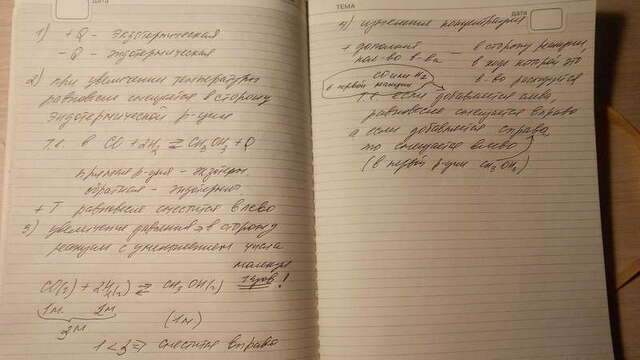 ДАТА
1) +Q - экзотермическая
-Q - эндотермическая
2) при увеличении температуры
равновесие смещается в сторону
эндотермической р-ции
т.е. в CO + 2H2 ⇄ CH3OH + Q
прямая р-ция - экзотерм.
обратная - эндотерм.
+T равновесие сместится влево
3) увеличение давления → в сторону
реакции с уменьшением числа
молекул
газов!
CO(г) + 2H2(г) ⇄ CH3OH(г)
1м 2м
3м (1м)
1 < 3 ⇒ сместится вправо
ТЕМА
ДАТА
4) изменения концентрации
+ дополнит. — в сторону реакции,
кол-во в-ва в ходе которой это
CO или H2 в-во расходуется
в первой реакции
т.е если добавляется слева,
равновесие смещается вправо
а если добавляется справа,
то смещается влево
(в первой р-ции CH3OH)